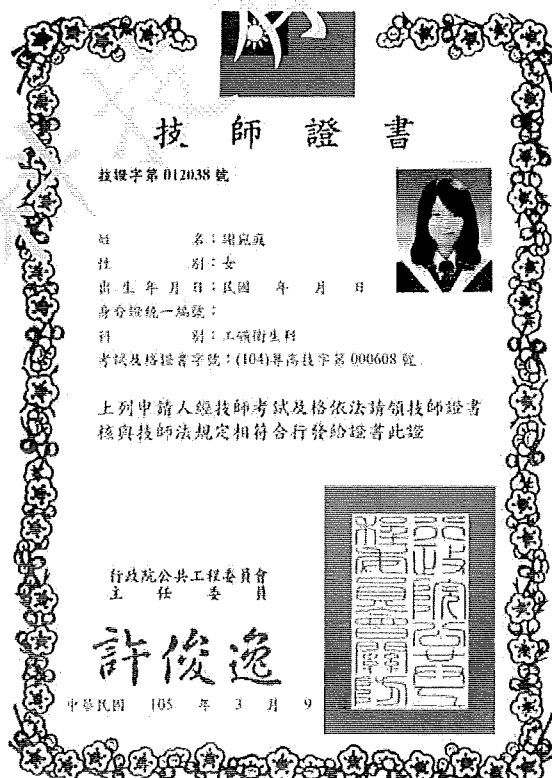 技師證書
技證字第 012038 號
姓名：謝宛庭
性別：女
出生年月日：民國 年 月 日
身分證統一編號：
科別：工礦衛生科
考試及格證書字號：(104)專高技字第 000608 號
上列申請人經技師考試及格依法請領技師證書
核與技師法規定相符合行發給證書此證
行政院公共工程委員會
主任委員
許俊逸
中華民國 105 年 3 月 9
行政院公共工程委員會印